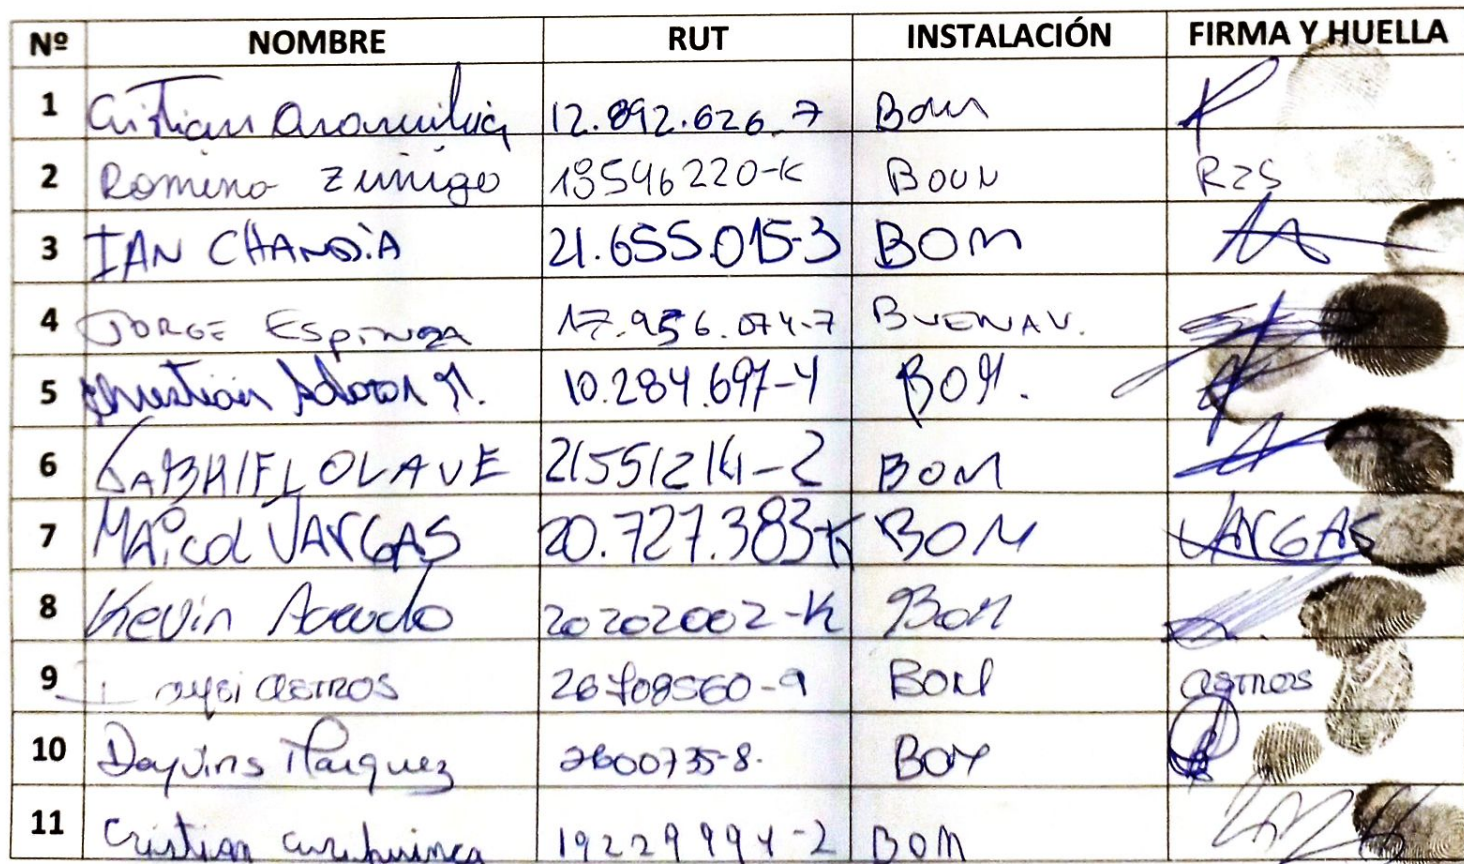 Nº NOMBRE RUT INSTALACIÓN FIRMA Y HUELLA
1 Cristian 12.892.626-7 Bom
2 Romina Zuñiga 18546220-K BOUN RZS
3 IAN CHANDiA 21.655.015-3 BOM
4 JORGE ESPINOZA 17.956.074-7 BUENAV.
5 Christian 10.284.697-4 BOM.
6 GABRIEL OLAVE BOM
7 MAicol VARGAS 20.727.383-K BOM VARGAS
8 Kevin Acevedo 20202002-K BOM
9 castros 26708560-9 BOM castros
10 Dayvins Marquez 2600735-8. BOM
11 Cristian Curihuinca 19229994-2 BOM